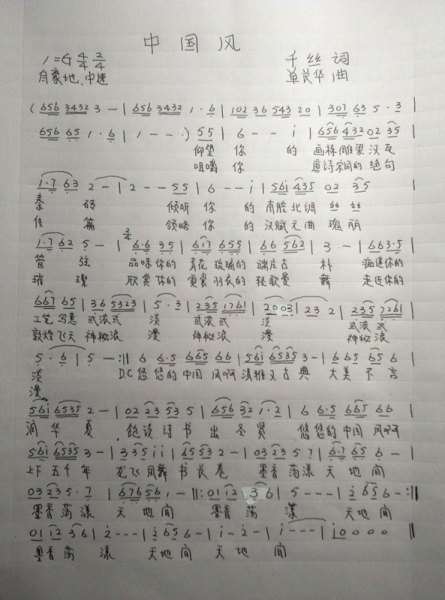 中国风
1=G 4/4 2/4 千丝 词
自豪地、中速 单长华 曲
(656 3432 3 - | 656 3432 1·6 | 102 36 543 20 | 307 63 5·3 |
656 65 1·6 | 1 - - :) 55 | 6 - - i | 656 432 02 35 |
仰望 你 的 画栋雕梁汉瓦
咀嚼 你 的 唐诗宋词的 绝句
1·7 63 2 - | 2 - - 55 | 6 - - i | 561 435 02 35 |
秦 砖 倾听 你 的 南腔北调 丝丝
佳 篇 领略 你 的 汉赋元曲 瑰丽
1·7 62 5 - | 6·6 35 | 617 655 | 66 562 | 3 - | 663·5 |
管 弦 品味你的 青花 玻璃的 古 朴
璀 璨 欣赏你的 舞 走近你的
667 65 | 36 5323 | 5·3 | 235 1761 | 2003 | 23 2 | 235 7261 |
工笔 写意 或浓或 淡 或浓或 淡 或浓或
敦煌飞天 神秘浪 漫 神秘浪 漫 神秘浪
5·6 | 5 - :|| 6 6·5 665 66 | 561 6535 3 - | 665 65 6 |
淡 D.C 您 您的 中国 风啊 清雅又古典 大美 不言
漫
561 6535 2 - | 02 23 53 5 | 656 32 1·2 | 6 6·5 665 66 |
润华夏 饱读 诗书 出 圣贤 您 您的 中国 风啊
561 6535 3 - | 335 i i | 65 53 2 - | 03 23 57 | 6·7 65 6 - |
上下 五千 年 龙飞凤舞 书 长卷 墨香 荡漾 天地 间
03 23 5·7 | 676561 - ||: 01 12 36 | 5 - - - | 2 65 6 - :||
墨香 荡 漾 天 地 间 墨香 荡 漾 天地 间
01 12 36 | 2 - - - | 2 65 6 - | i - 2 - | i - - - | i 0 0 0 0 ||
墨香 荡 漾 天地 间 天 地 间